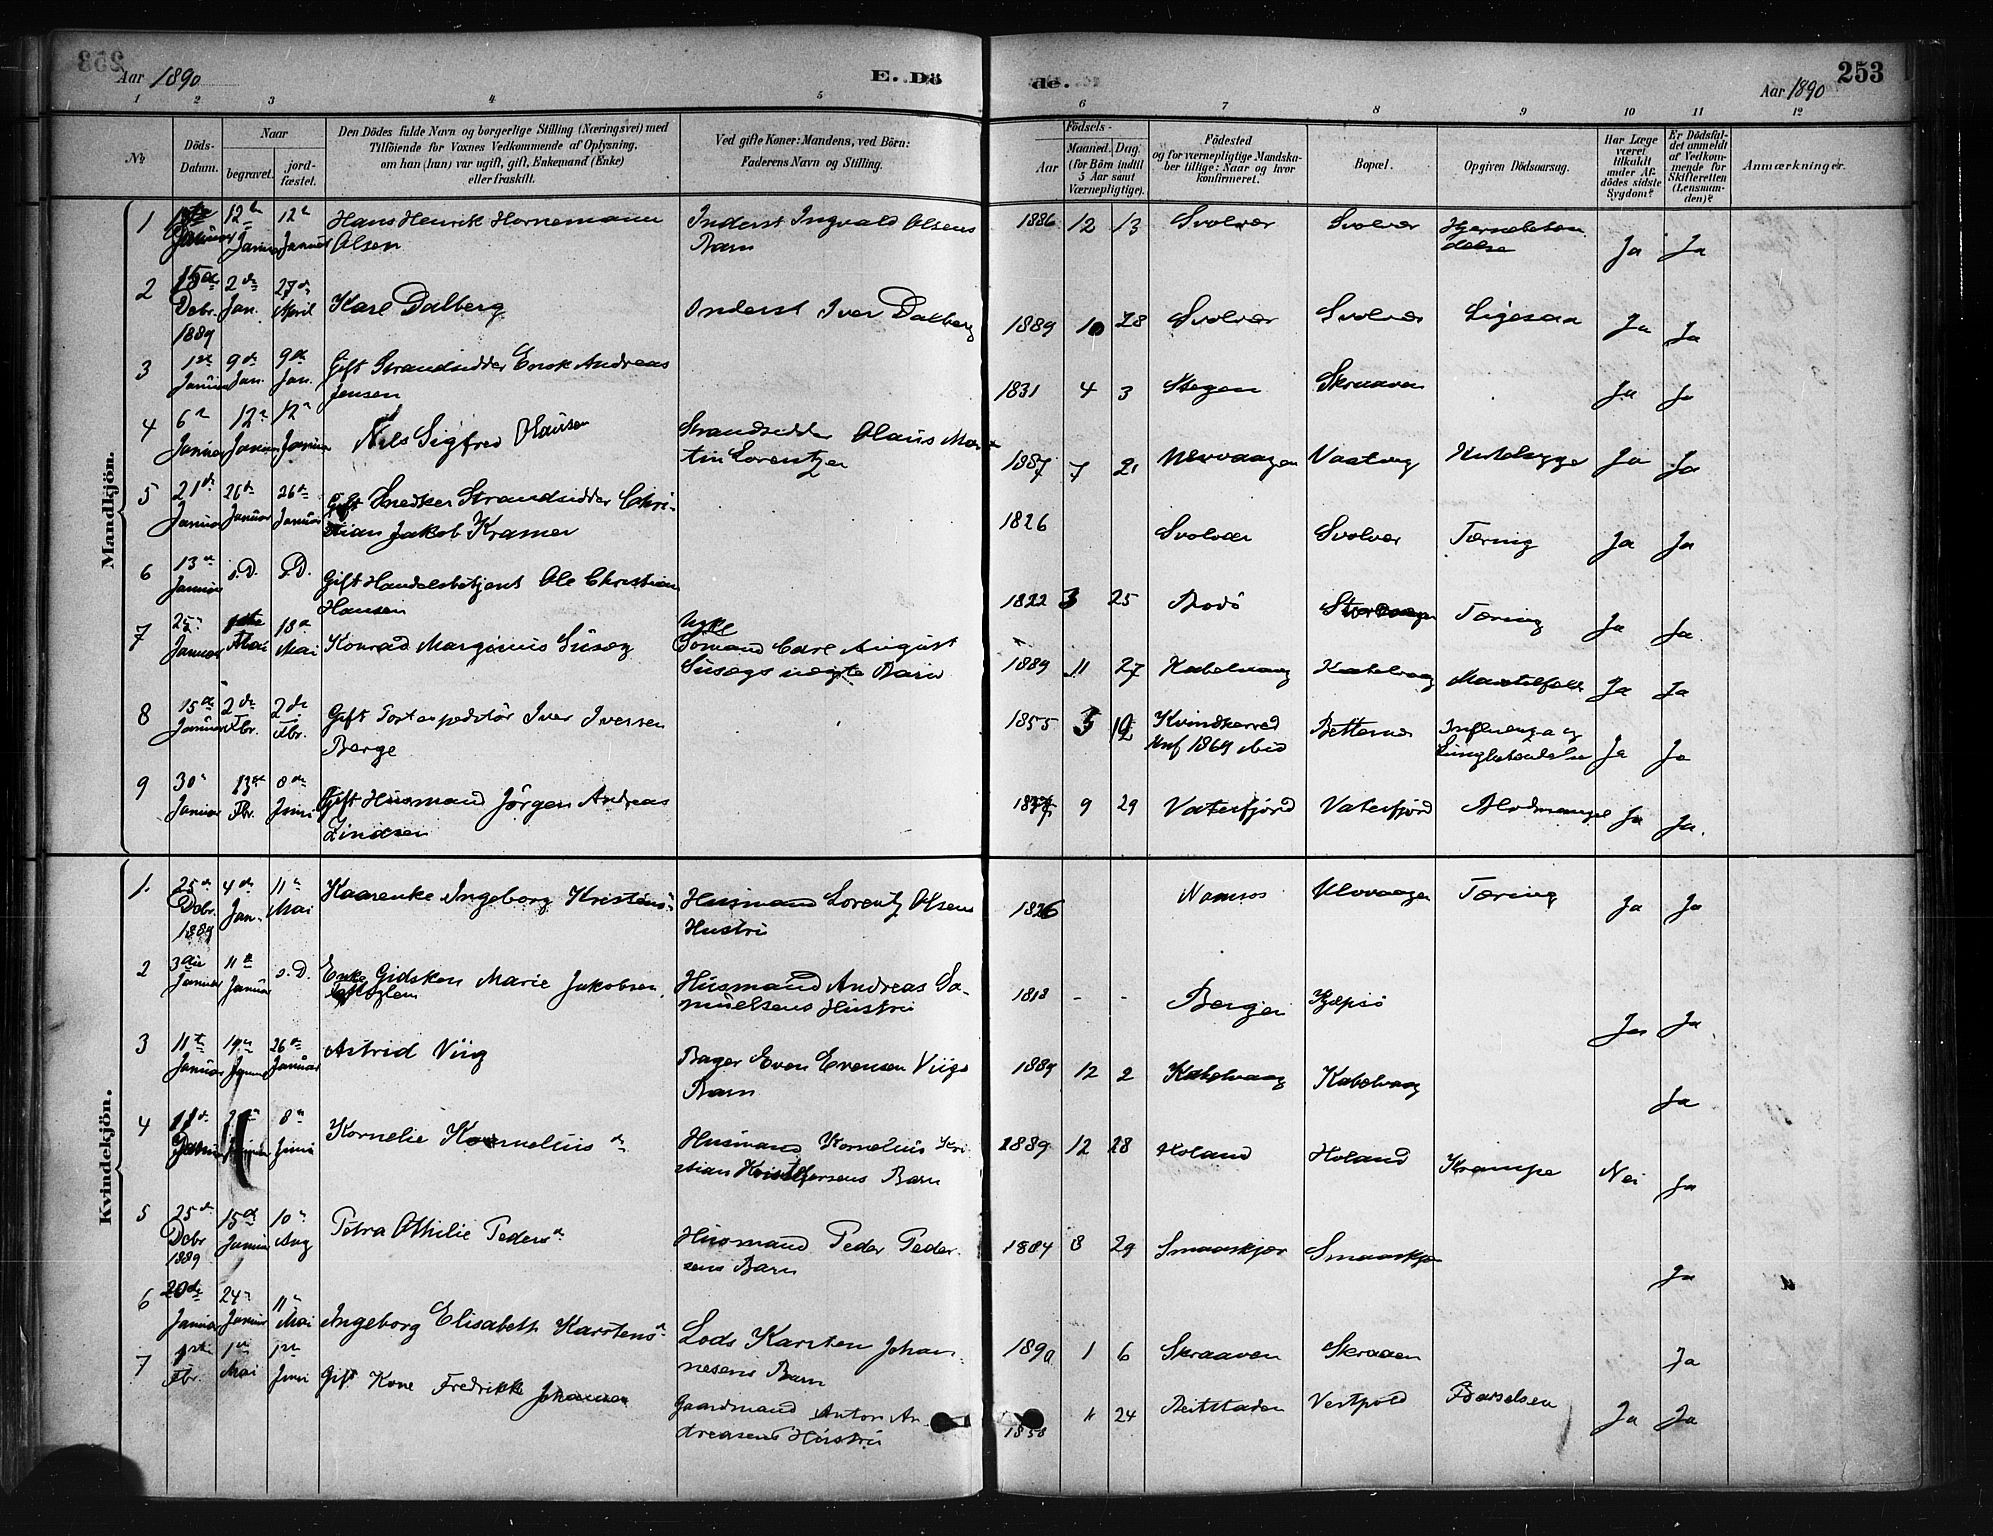 Aar 1890
E. Dö
de.
253
Aar 1890
1 2 3 4 5 6 7 8 9 10 11 12
No
Döds-
Datum.
Naar
begravet.
jord-
fæstet.
Den Dödes fulde Navn og borgerlige Stilling (Næringsvei) med
Tilföiende for Voxnes Vedkommende af Oplysning,
om han (hun) var ugift, gift, Enkemand (Enke)
eller fraskilt.
Ved gifte Koner: Mandens, ved Börn:
Faderens Navn og Stilling.
Födsels-
Aar
Maaned. Dag.
(for Börn indtil
5 Aar samt
Værnepligtige).
Födested
og for værnepligtige Mandska-
ber tillige: Naar og hvor
konfirmeret.
Bopæl.
Opgiven Dödsaarsag.
Har Læge
været
tilkaldt
under Af-
dödes sidste
Sygdom?
Er Dödsfal-
det anmeldt
af Vedkom-
mende for
Skifteretten
(Lensman-
den)?
Anmærkninger.
Mandkjön.
1 Januar 12 Januar 12 Januar Hans Henrik Hornemann
Olsen
Inderst Ingvald Olsens
Barn
1886 12 13 Svolvær Svolvær Hjernebetæn
delse Ja Ja
2 15de Debr. 1889 2de Jan. 27de April Karl Dalberg
Inderst Iver Dalberg
1889 10 28 Svolvær Svolvær Ligesaa Ja Ja
3 1ste Januar 9de Jan. 9de Jan. Gift Strandsidder Enok Andreas
Jensen
1831 4 3 Stegen Skraaven Ja Ja
4 6 Januar 12 Januar 12 Januar Nils Sigfred Olausen
Strandsidder Olaus Mar
tin Lorentzen
1887 7 21 Ja Ja
5 21de Januar 26de Januar 26de Januar Gift Snedker Strandsidder Chri-
stian Jakob Kramer
1826 Svolvær Svolvær Tæring Ja Ja
6 13de Januar s.D. s.D. Gift Handelsbetjent Ole Christian
Hansen
1822 3 25 Bodö Tæring Ja Ja
7 25 Januar Mai 18 Mai Konrad Marginius Susæg
Sömand Carl August
Susægs uægte Barn
1889 11 27 Kabelvaag Kabelvaag Ja Ja
8 15de Januar 2de Fbr. 2de Fbr. Gift Iver Iversen
Berge
1855 3 12 Kvindherred
Knf 1869 ibid Influenza og
Lungebetændelse Ja Ja
9 30 Januar 13de Fbr. 8de Juni Gift Husmand Jörgen Andreas
Zindsen
9 29 Vaterfjord Vaterfjord Blodmangel Ja Ja.
Kvindekjön.
1. 25de Debr. 1889 4de Jan. 11 Mai Kaarenke Ingeborg Kristens
Husmand Lorentz Olsens
Hustru
1826 Namsos Ulvaagen Tæring Ja Ja
2 3die Januar 11te Januar s.D. Enke Gidsken Marie Jakobsen
Husmand Andreas Sa-
muelsens Hustru
1818 - - Bergen Ja Ja
3 11te Januar 19de 26de Januar Astrid Viig
Bager Even Evensen Viigs
Barn
1889 12 2 Kabelvaag Kabelvaag Ja
4 8 Juni Kornelie Kornelius
Husmand Kornelius Kri
stian Kristoffersens Barn
1889 12 28 Holand Holand Krampe Nei Ja
5 25de Debr 1889 15de Januar 10 Aug Petra Othilie Peders
Husmand Peder Peder
sens Barn
1884 8 29 Smaaskjær Smaaskjær
Ja
6 20de Januar 24 Januar 11 Mai Ingeborg Elisabeth Karstens
Lods Karsten Johan-
nesens Barn
1890 1 6 Skraaven Skraaven Ja
7 1ste Fbr. 1ste Mai 1ste Juni Gift Kone Fredrikke Johansen
Gaardmand Anton An
dreasens Hustru
1858 11 24 Beitstaden Vestpold Barselsen Ja Ja